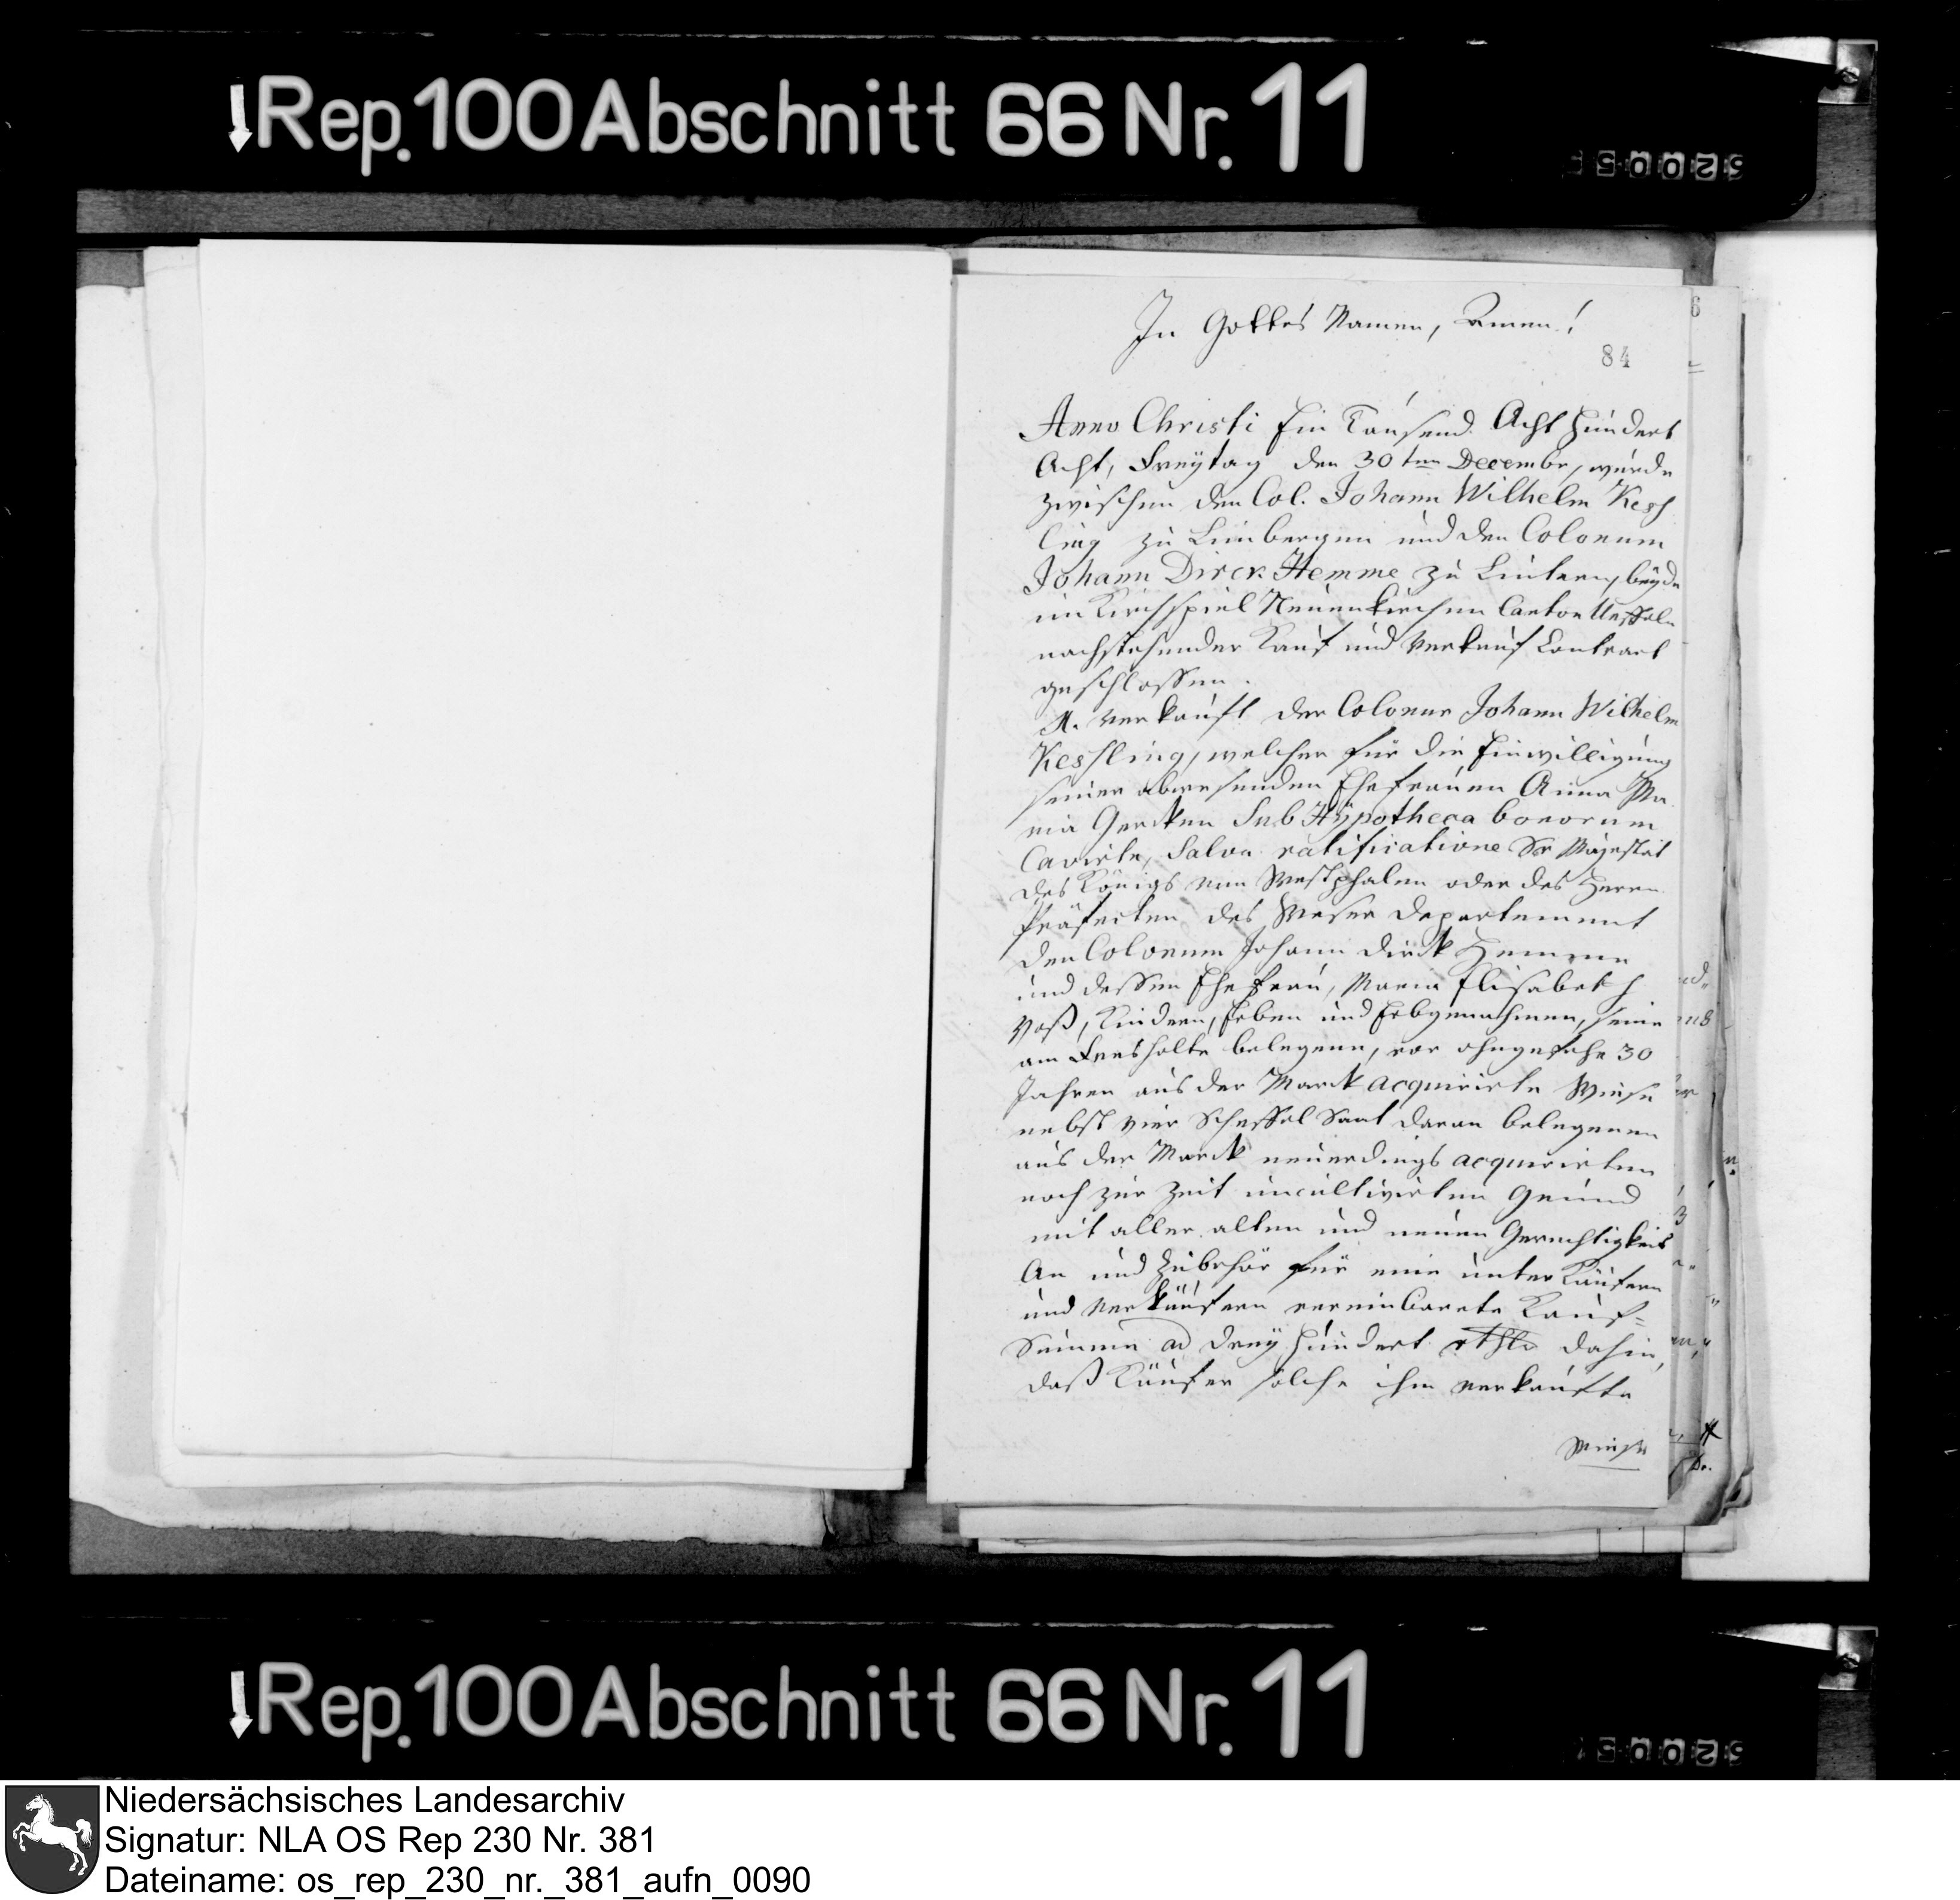 Rep. 100 Abschnitt 66 Nr. 11
In Gottes Namen, Amen!
84
Anno Christi Ein Tausend Acht Hundert
Acht, Freÿtag den 30ten Decembr, wurde
zwischen den Col. Johann Wilhelm Kess
ling zu Limbergen und den Colonum
Johann Dirck Hemme zu Lintern, beÿde
im Kirchspiel Neuenkirchen Canton Ueffeln
nachstehender Kauf und Verkauf Contract
geschlossen.
Verkauft der Colonus Johann Wilhelm
Kessling, welcher für die Einwilligung
seiner abwesenden Ehefrauen Anna Ma
ria Gercken Sub Hÿpotheca bonorum
Cavirte, Salva ratificatione Sr Majestät
des Königs von Westphalen oder des Herrn
Präfecten des Weser Departement
den Colonum Johann Dirck Hemme
und dessen Ehefrau, Maria Elisabeth
Voß, Kindern, Erben und Erbgenahmen, seine
am Freesholte belegene, vor ohngefehr 30
Jahren aus der Marck acquirirte Wiese
nebst vier Scheffel Saat daran belegenen
aus der Marck neuerdings acquirirten
noch zur Zeit uncultivirten Grund
mit aller alten und neuen Gerechtigkeit
An und Zubehör für eine unter Käufern
und Verkäufern vereinbarte Kauf=
Summe ad dreÿ hundert rthlr dahin,
daß Käufer solche ihm verkaufte
Wiese
Rep. 100 Abschnitt 66 Nr. 11
Niedersächsisches Landesarchiv
Signatur: NLA OS Rep 230 Nr. 381
Dateiname: os_rep_230_nr._381_aufn_0090